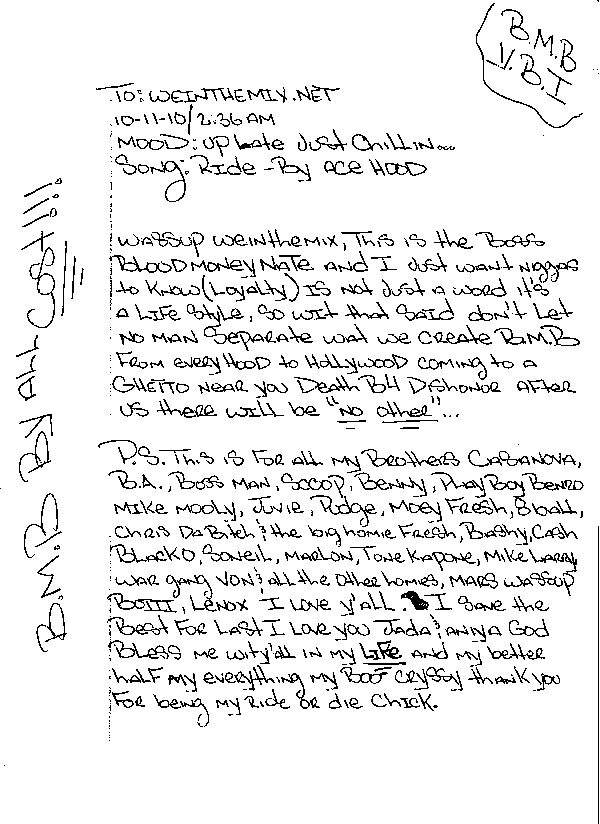 B.M.B
V.B.I
TO: WEINTHEMIX.NET
10-11-10/2:36 AM
MOOD: UP Late Just Chillin...
Song: Ride - By ACE HOOD
WAZSUP WEINTHEMIX, This is the Boss
BLOOD MONEY NATE AND I Just want Niggas
to KNOW (Loyalty) IS NOT Just A WORD it's
A LIFE Style, SO wit that Said don't Let
NO MAN Separate wat we create B.M.B
FROM every HOOD to HOLLYWOOD COMING to A
GHETTO NEAR YOU Death B4 Dishonor AFTER
US there will be "NO OTHER"...
P.S. This is For all my Brothers CASANOVA,
B.A., BOSS MAN, SCOOP, BENNY, PlayBoy BENRO
MIKE MOOLY, JUVIE, Pudge, MOEY FRESH, 8ball,
CHRIS DA BITCH & the big homie Fresh, Bashy, Cash
BLACKO, SONEIL, MARLON, TONE KAPONE, MIKE LARRY
WAR gang VON & all the other homies, MARS WASSUP
LENOX I LOVE y'all. I Save the
Best For Last I Love you Jada & Aniya God
Bless me wit y'all in my LIFE AND my better
half my everything my BOO CRYSSY thank you
For being my Ride or die Chick.
B.M.B By ALL Cost!!!